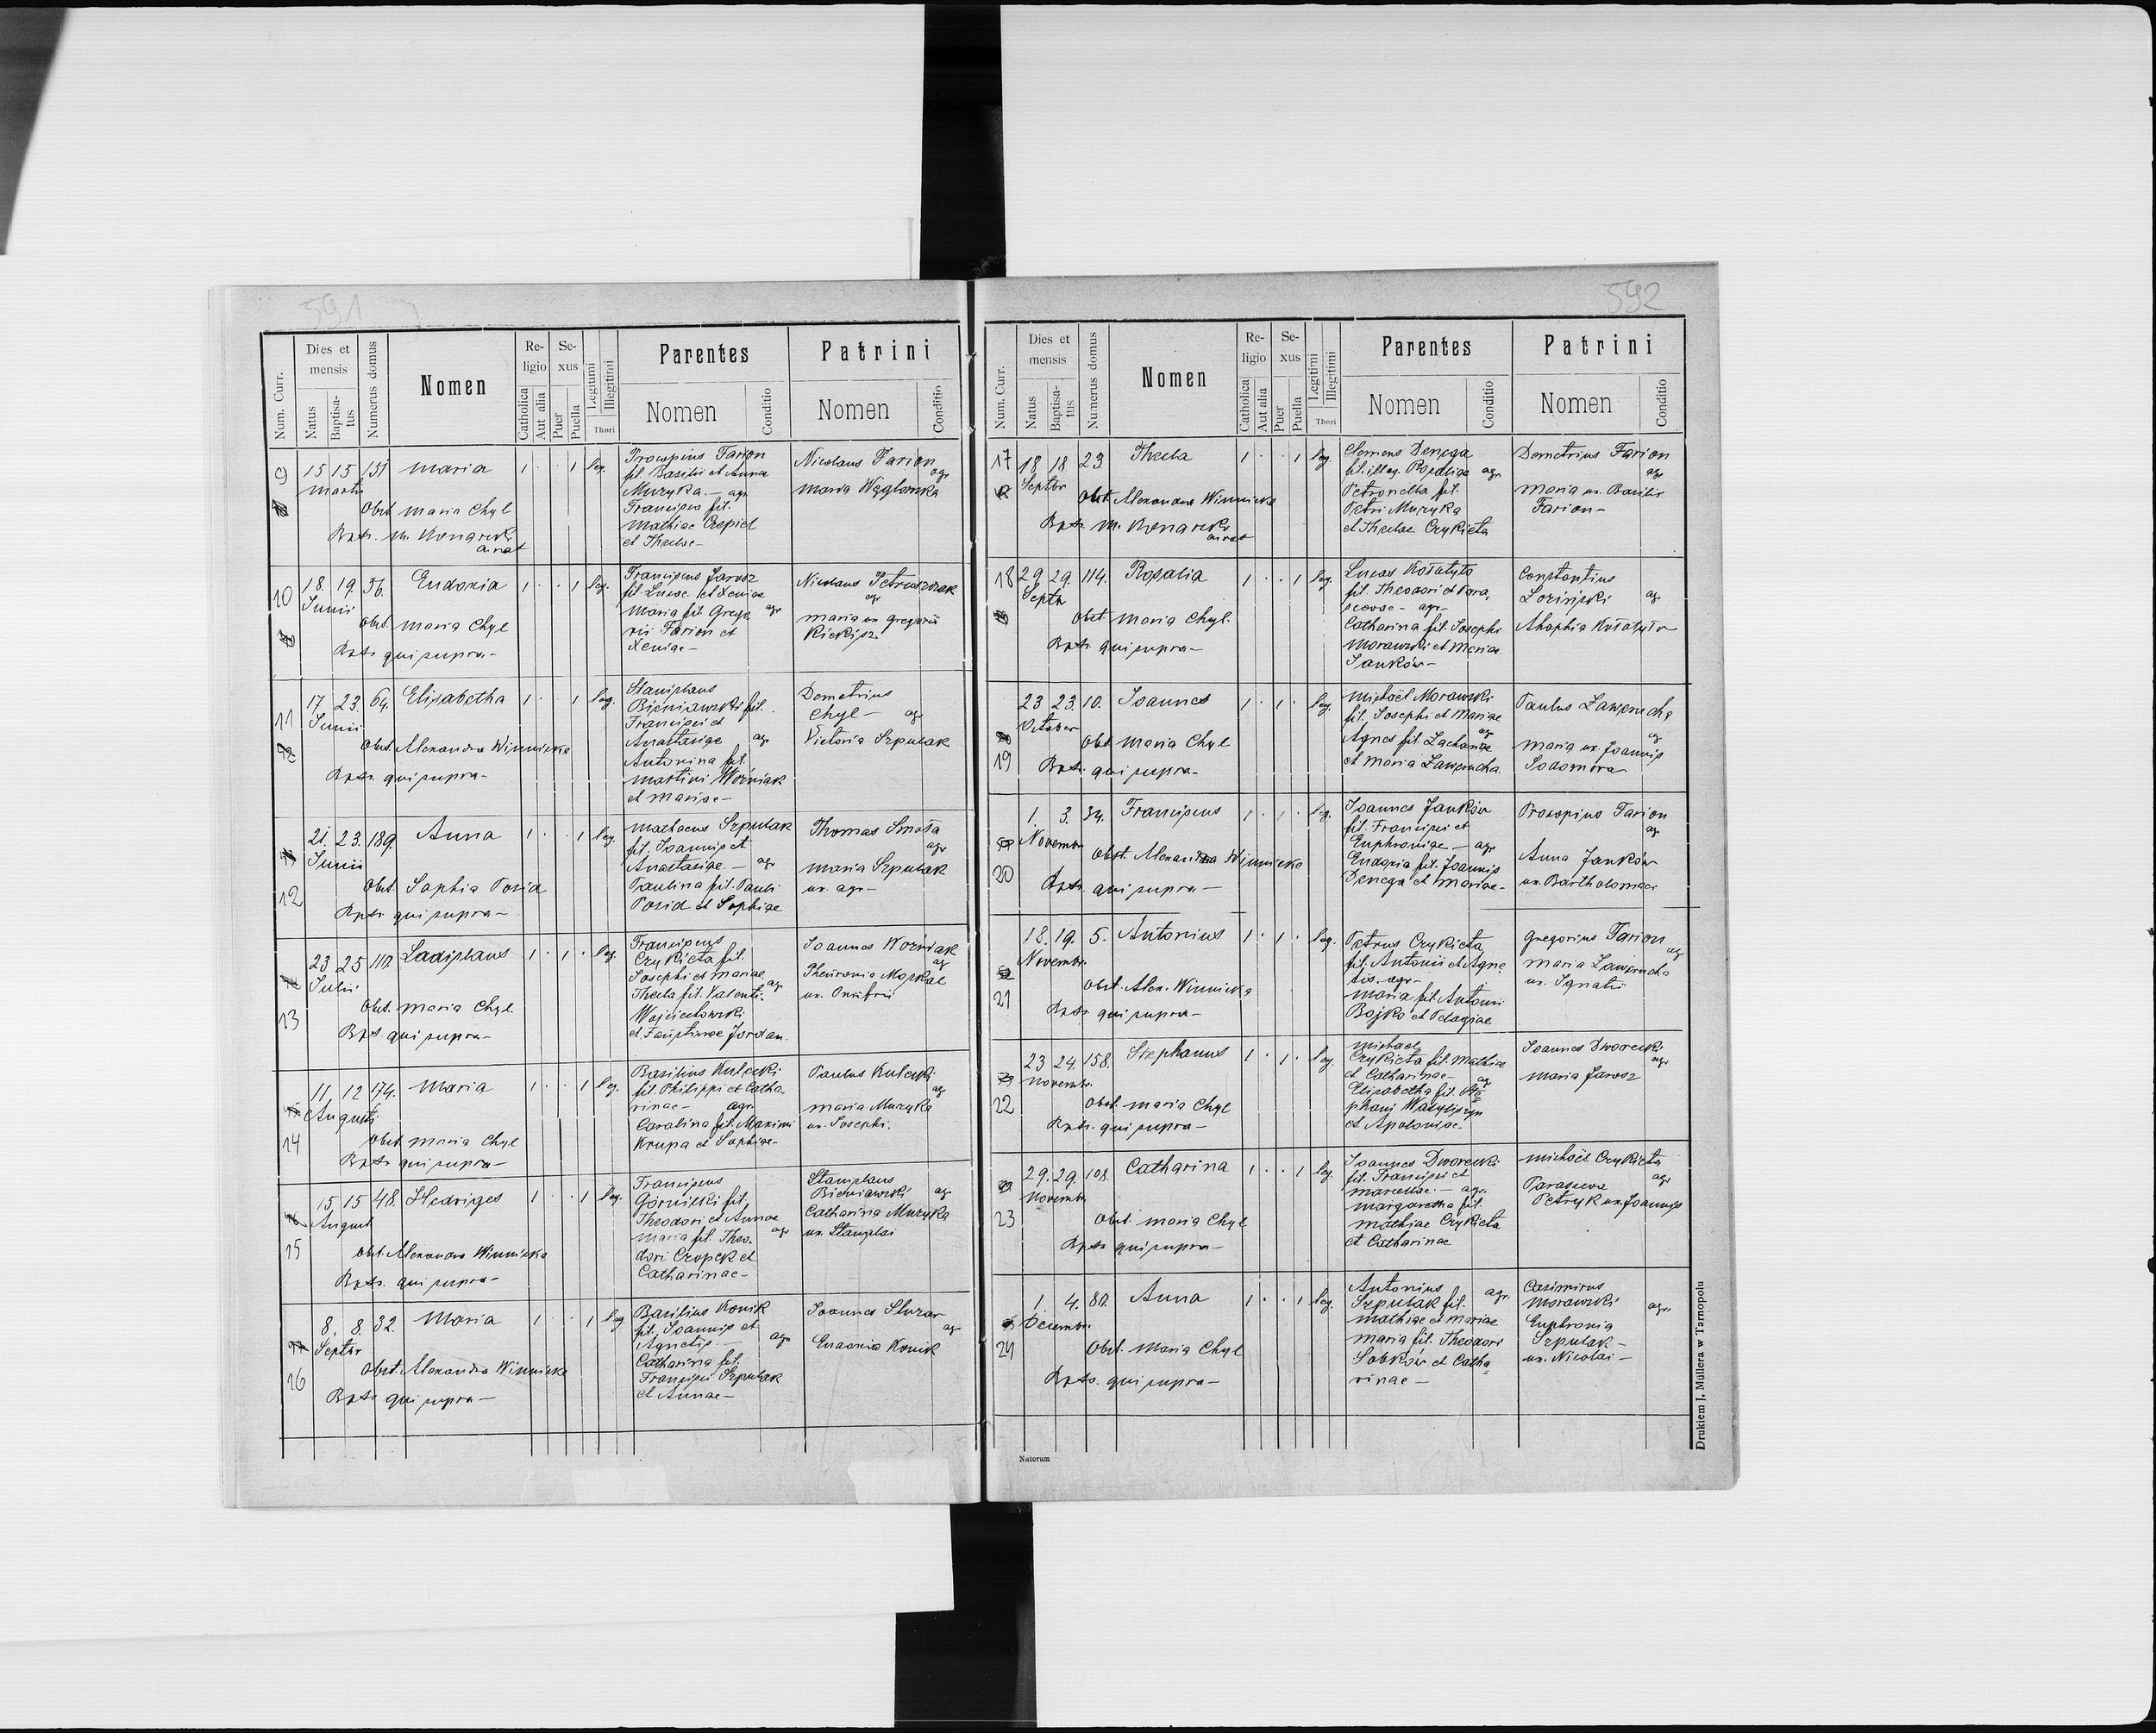 591
Num. Curr.
Dies et mensis
Natus
Baptisatus
Numerus domus
Nomen
Religio
Catholica
Aut alia
Sexus
Puer
Puella
Legitimi
Illegitimi
Thori
Parentes
Nomen
Conditio
Patrini
Nomen
Conditio
9
15 15 151 Maria 1 · · 1 leg.
Martii
Obst. Maria Chyl
Bpts. M. Konarski
Procopius Farion
fil. Basilii et Anna
Muzyka. — agr
fil.
Mathiae Czepiel
et Theclae —
Nicolaus Farion
agr
Maria Węglowska
10
18. 19. 56. Eudoxia 1 · · 1 leg.
Junii
Obst. Maria Chyl
Bpts. qui supra —
Franciscus Jarosz
fil. Lucae et Xeniae
Maria fil. Grego- agr
rii Farion et
Xeniae —
Nicolaus
agr
Maria ux Gregorii
11
17 23. 64. Elisabetha 1 · · 1 leg.
Junii
Obst. Alexandra Winnicka
Bpts. qui supra —
Stanislaus
Bieniawski fil.
Francisci et
Anastasiae agr
Antonina fil.
Martini Woźniak
et Mariae —
Demetrius
Chyl — agr
Victoria Szpulak
12
21. 23. 189. Anna 1 · · 1 leg.
Junii
Obst. Sophia Posid
Bpts. qui supra —
Mathaeus Szpulak
fil. Joannis et
Anastasiae — agr
Paulina fil. Pauli
Posid et Sophiae
Thomas Smoła
agr
Maria Szpulak
ux. agr —
13
23 25 Ladislaus 1 · 1 · leg.
Julii
Obst. Maria Chyl
Bpts. qui supra —
Franciscus
Czykieta fil.
Josephi et Mariae
Thecla fil. Valenti- agr
Wojciechowski
et Faustinae Jordan.
Joannes Woźniak
agr
ux. Onufrii
14
11 12 174. Maria 1 · · 1 leg.
Augusti
Obst. Maria Chyl
Bpts. qui supra —
Basilius Kulecki
fil. Philippi et Catha-
rinae — agr.
Carolina fil. Maximi
Krupa et Sophiae —
Paulus Kulecki
agr
Maria Muzyka
ux. Josephi.
15
15 15 48. Hedviges 1 · · 1 leg.
August
Obst. Alexandra Winnicka
Bpts. qui supra —
Franciscus
Górnicki fil.
Theodori et Annae
Maria fil. Theo- agr
dori Czopek et
Catharinae —
Stanislaus
Bieniawski agr
Catharina Muzyka
ux. Stanislai
16
8. 8. 32. Maria 1 · · 1 leg
Septbr
Obst. Alexandra Winnicka
Bpts. qui supra —
Basilius Konik
fil. Joannis et
Agnetis — agr
Catharina fil.
Francisci Szpulak
et Annae —
Joannes
agr
Eudoxia Konik
592
Num. Curr.
Dies et mensis
Natus
Baptisatus
Numerus domus
Nomen
Religio
Catholica
Aut alia
Sexus
Puer
Puella
Legitimi
Illegitimi
Thori
Parentes
Nomen
Conditio
Patrini
Nomen
Conditio
17
18 18. 23 Thecla 1 · · 1 leg.
Septbr
Obst. Alexandra Winnicka
Bpts. M. Konarski
Clemens Denega
fil. illeg. Rosaliae agr
Petronella fil.
Petri Muzyka
et Theclae Czykieta
Demetrius Farion
agr
Maria ux. Basilii
Farion —
18
29 29. 114. Rosalia 1 · · 1 leg.
Septbr
Obst. Maria Chyl.
Bpts. qui supra —
Lucas Kołatyło
fil. Theodori et Para-
scevae — agr —
Catharina fil. Josephi
Morawski et Mariae
Janków —
Constantius
Łoziński agr
Ahaphia Kołatyło
23 23. 10. Joannes 1 · 1 · leg.
October
Obst. Maria Chyl
19
Bpts. qui supra —
Michaël Morawski
fil. Josephi et Mariae
agr
Agnes fil. Zachariae
et Maria Ławrucha
Paulus Ławrucha
agr
Maria ux. Joannis
Sodomora
1. 3. 34. Franciscus 1 · 1 · leg.
Novembr
Obst. Alexandra Winnicka
20
Bpts. qui supra —
Joannes Janków
fil. Francisci et
Euphrosinae — agr
Eudoxia fil. Joannis
Denega et Mariae —
Procopius Farion
agr
Anna Janków
ux. Bartholomaei
18. 19. 5. Antonius 1 · 1 · leg.
Novembr.
Obst. Alex. Winnicka
21
Bpts. qui supra —
Petrus Czykieta
fil. Antonii et Agne-
tis. agr —
Maria fil. Antonii
Bojko et Pelagiae
Gregorius Farion
agr
Maria Ławrucha
ux. Ignatii
23 24. 158. Stephanus 1 · 1 · leg.
Novembr.
22
Obst. Maria Chyl
Bpts. qui supra —
Michael
Czykieta fil. Mathiae
et Catharinae — agr
Elisabetha fil. Ste-
phani Wasyliszyn
et Apoloniae —
Joannes Dworecki
agr
Maria Jarosz
29. 29. 108. Catharina 1 · · 1 leg.
Novembr
23
Obst. Maria Chyl
Bpts. qui supra —
Joannes Dworecki
fil. Francisci et
Marcellae — agr.
Margaretha fil.
Mathiae Czykieta
et Catharinae
Michaël Czykieta
agr
Parasceva
Petryk ux. Joannis
1. 4. 80. Anna 1 · · 1 leg.
Decembr.
24
Obst. Maria Chyl
Bpts. qui supra —
Antonius agr.
Szpulak fil.
Mathiae et Mariae
Maria fil. Theodori
Sobków et Catha-
rinae —
Casimirus
Morawski agr.
Euphronia
Szpulak —
ux. Nicolai —
Natorum
Drukiem J. Müllera w Tarnopolu